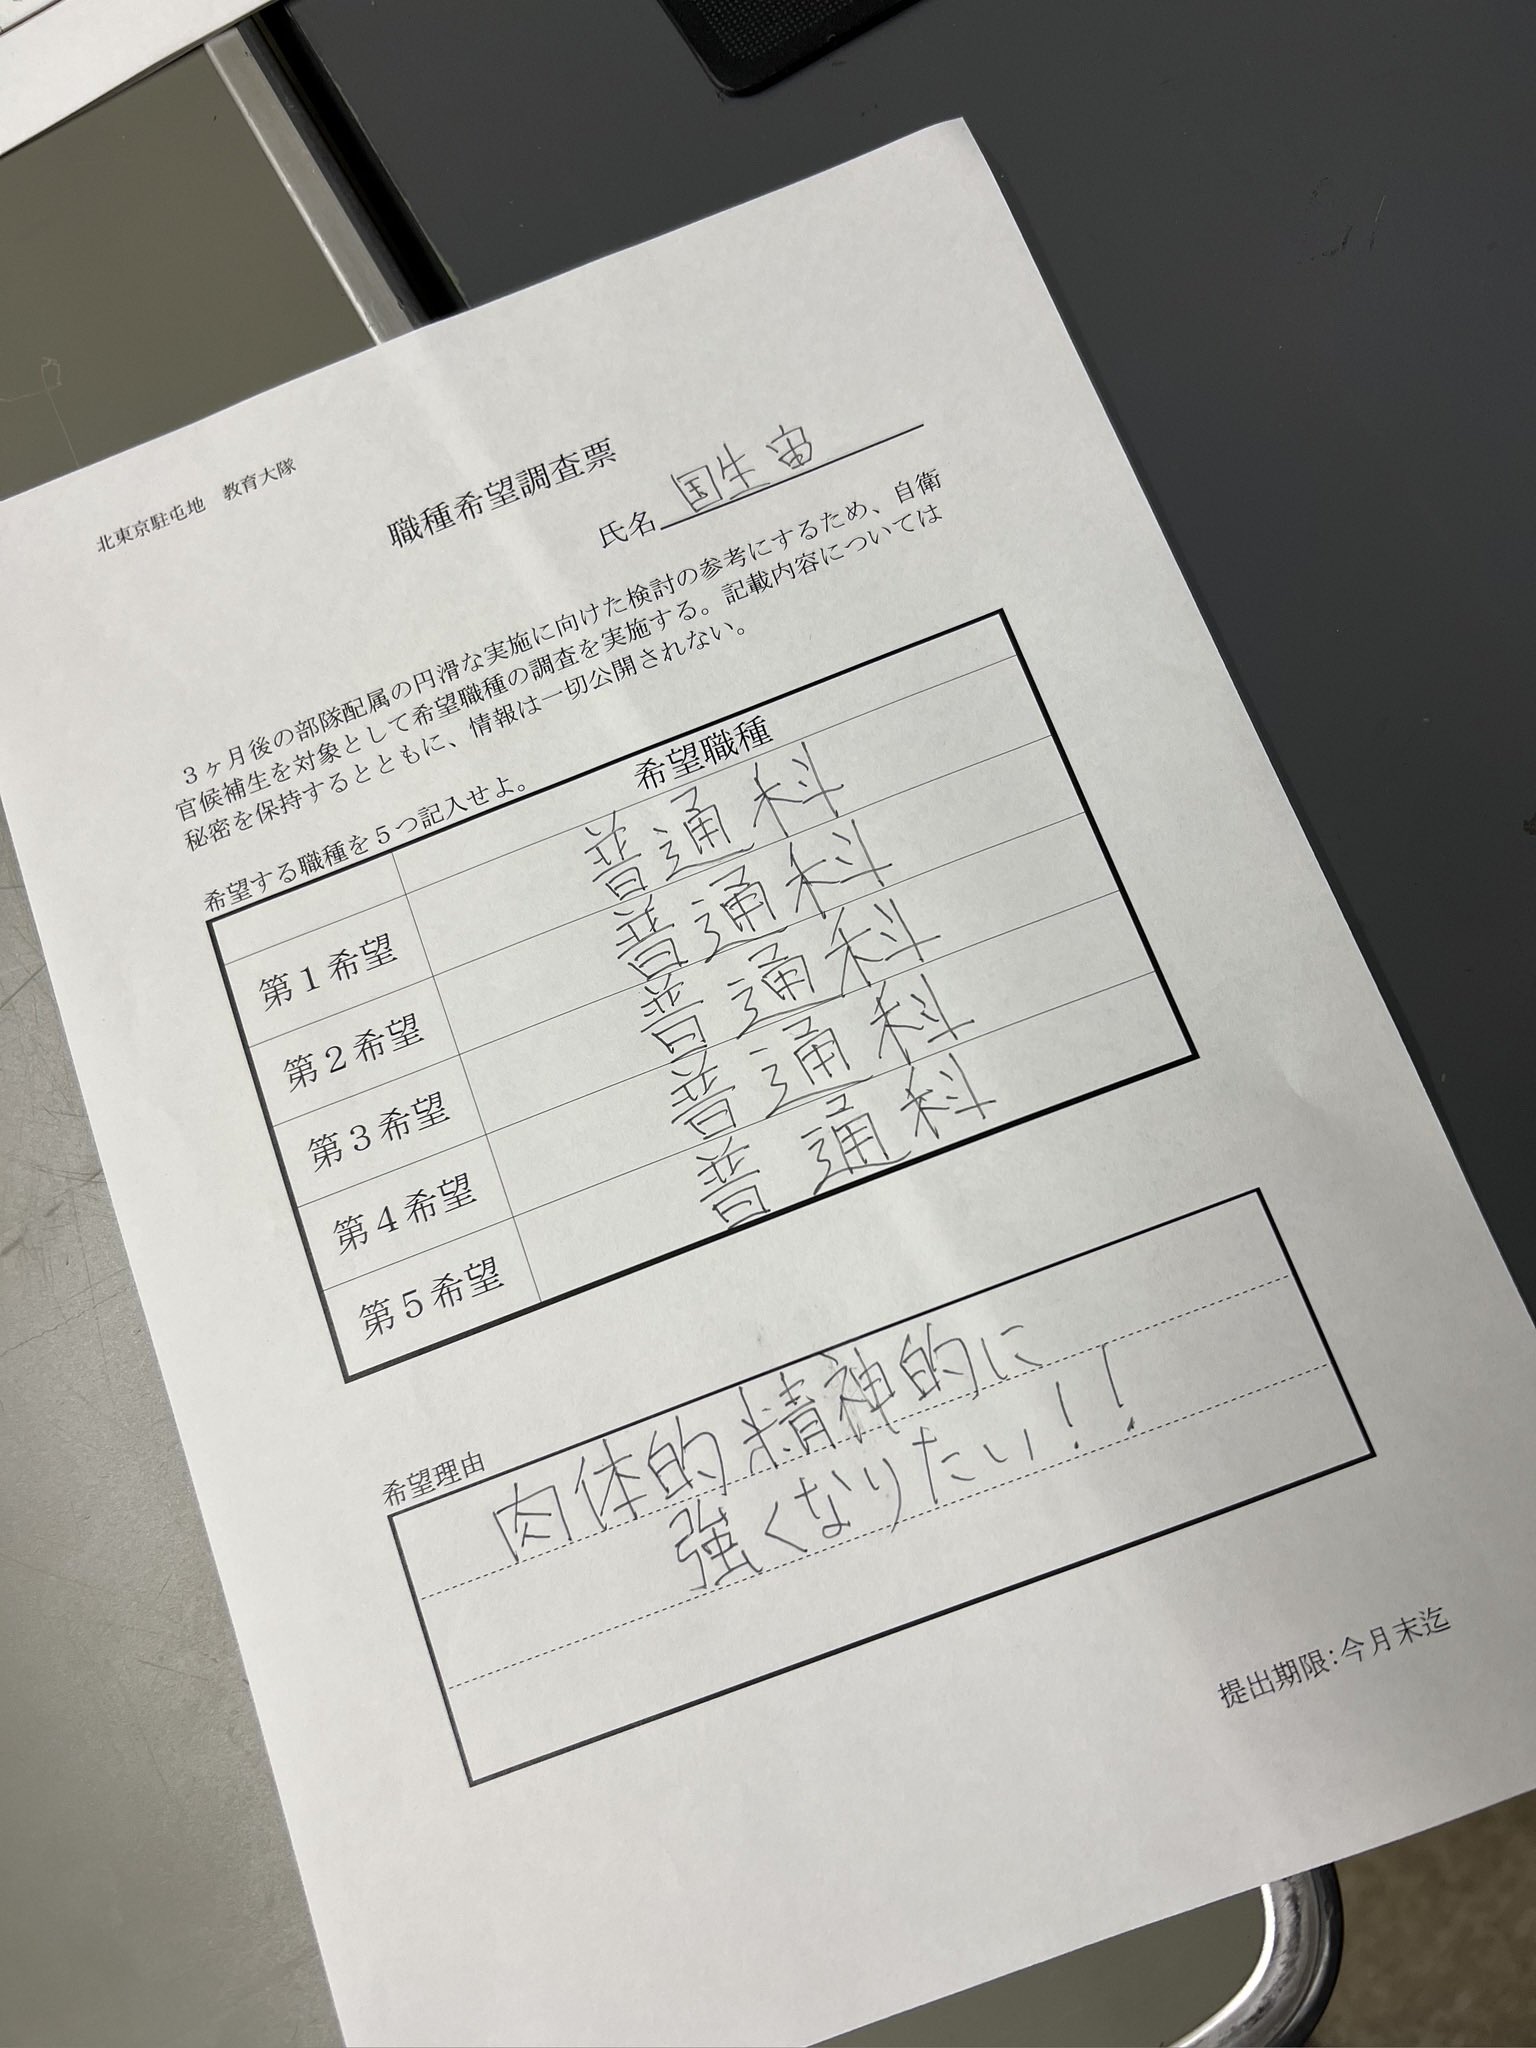 北東京駐屯地　教育大隊
職種希望調査票
氏名 国生宙
３ヶ月後の部隊配属の円滑な実施に向けた検討の参考にするため、自衛
官候補生を対象として希望職種の調査を実施する。記載内容については
秘密を保持するとともに、情報は一切公開されない。
希望する職種を５つ記入せよ。
希望職種
第１希望 普通科
第２希望 普通科
第３希望 普通科
第４希望 普通科
第５希望 普通科
希望理由
肉体的精神的に
強くなりたい!!
提出期限:今月末迄